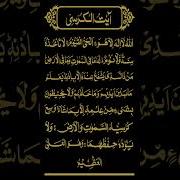 آیت الکرسی
اللهُ لَا إِلَٰهَ إِلَّا هُوَ الْحَيُّ الْقَيُّومُ لَا تَأْخُذُهُ
سِنَةٌ وَلَا نَوْمٌ لَهُ مَا فِي السَّمٰوٰتِ وَمَا فِي الْأَرْضِ
مَنْ ذَا الَّذِي يَشْفَعُ عِنْدَهُ إِلَّا بِإِذْنِهِ يَعْلَمُ
مَا بَيْنَ أَيْدِيهِمْ وَمَا خَلْفَهُمْ وَلَا يُحِيطُونَ
بِشَيْءٍ مِنْ عِلْمِهِ إِلَّا بِمَا شَاءَ وَسِعَ
كُرْسِيُّهُ السَّمٰوٰتِ وَالْأَرْضَ وَلَا
يَئُودُهُ حِفْظُهُمَا وَهُوَ الْعَلِيُّ
الْعَظِيمُ